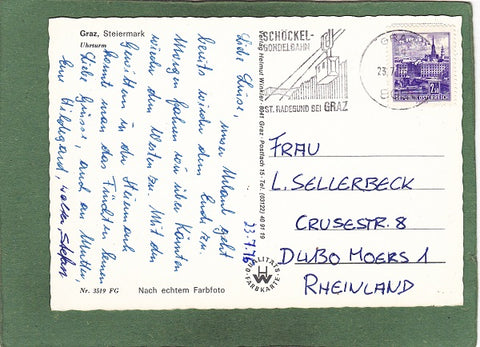 Graz, Steiermark
Uhrturm
Liebe Luise, unser Urlaub geht
bereits wieder dem Ende zu.
Morgen fahren wir über Kärnten
wieder dem Westen zu. Mit den
Gewittern in der Steiermark
kann man das Fürchten lernen
Liebe Grüsse, auch an Mutter,
Eure Hildegard, Walter, Stefan
23.7.76
Nr. 3519 FG
Nach echtem Farbfoto
Verlag Helmut Winkler 8041 Graz, Postfach 15 - Tel. (03122) 40 91 19
QUALITÄTS
FARBKARTE
SCHÖCKEL-
GONDELBAHN
ST. RADEGUND BEI GRAZ
GRAZ
23.7.
FRAU
L. SELLERBECK
CRUSESTR. 8
D4130 MOERS 1
RHEINLAND